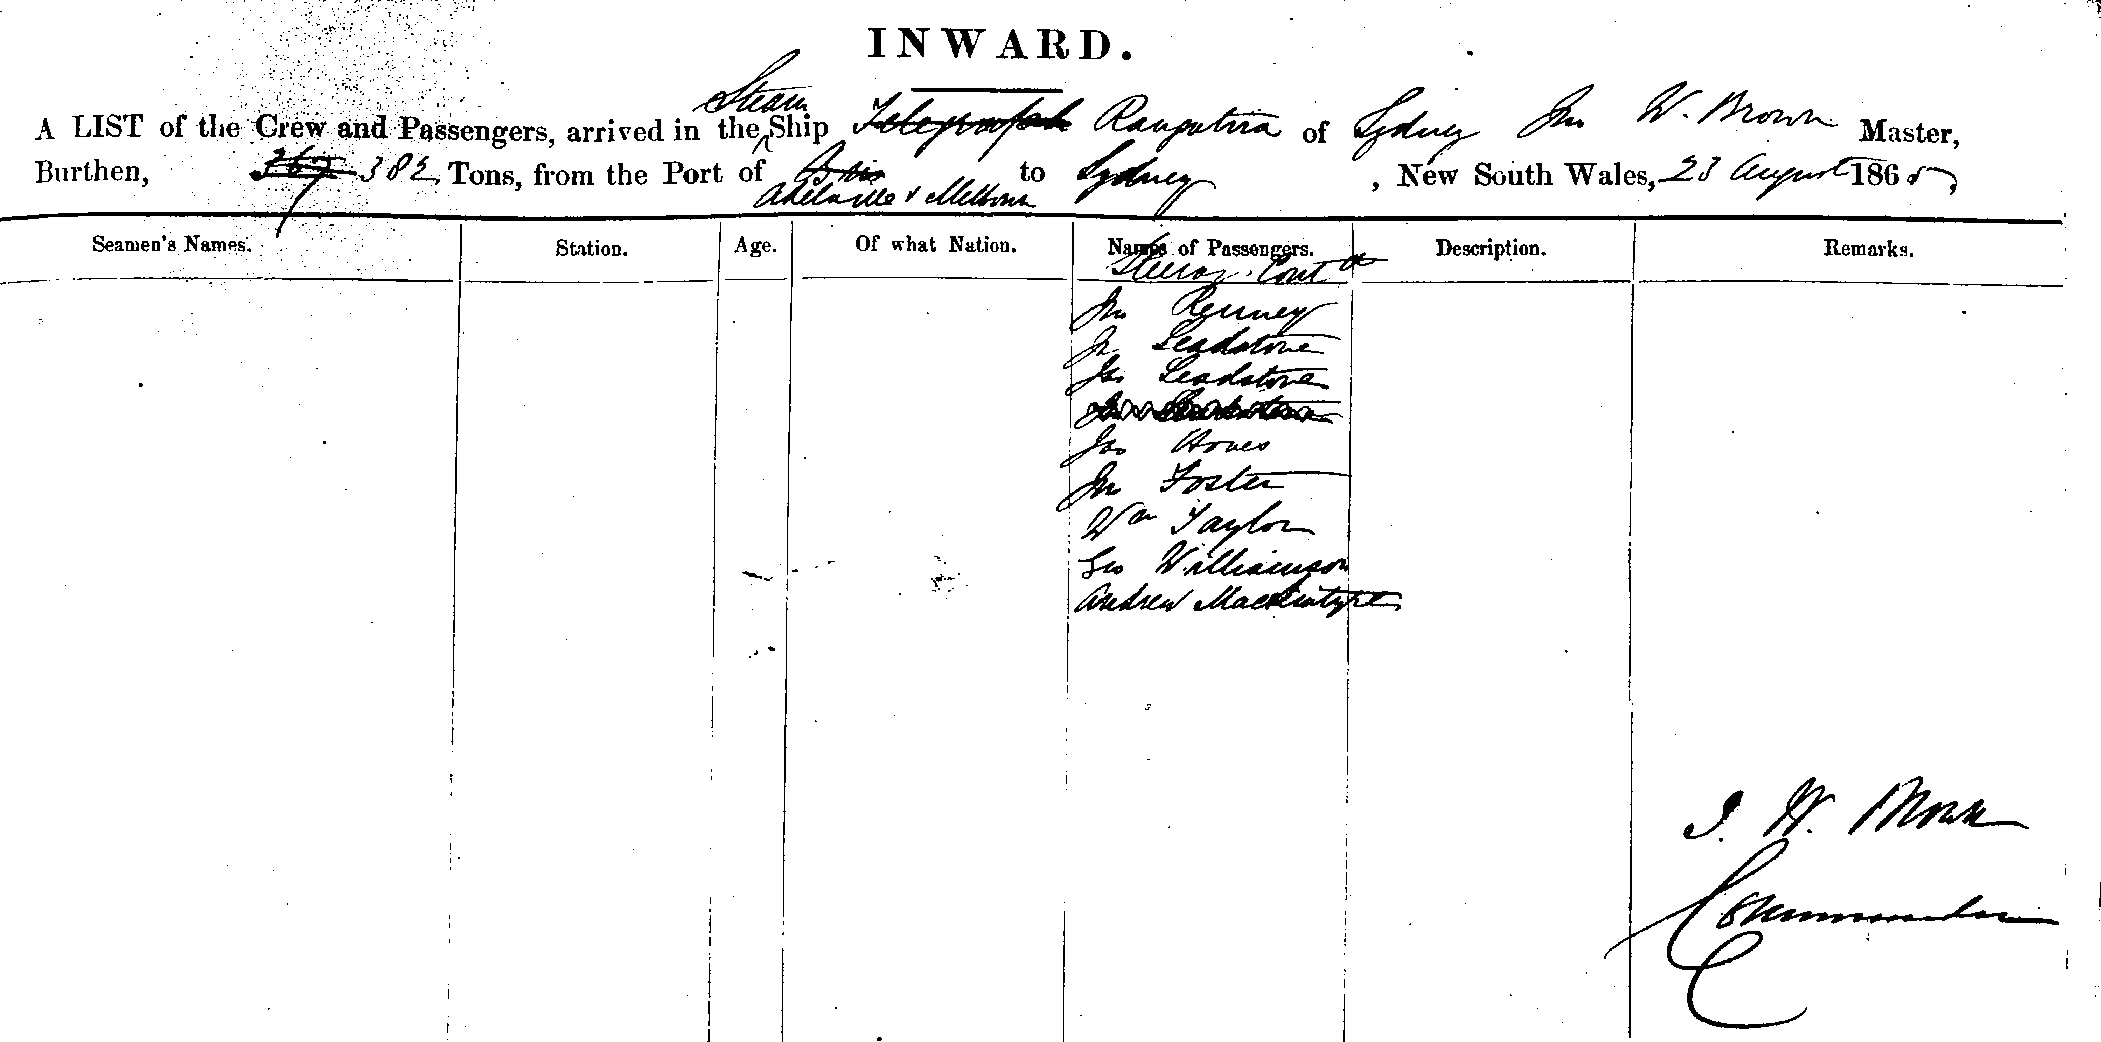 INWARD.
Steam
A LIST of the Crew and Passengers, arrived in the Ship Telegraph Rangatira of Sydney Jno W. Brown Master,
Burthen, 367 382 Tons, from the Port of Bris to Sydney, New South Wales, 23 August 1865,
Adelaide & Melbourne
Seamen's Names. Station. Age. Of what Nation. Names of Passengers. Description. Remarks.
Steerage Contd
Jno Renney
Jn Leadstone
Jas Leadstone
Jas
Jno Foster
Wm Taylor
Geo Williamson
Andrew MacKintyre
J. W. Brown
Commander